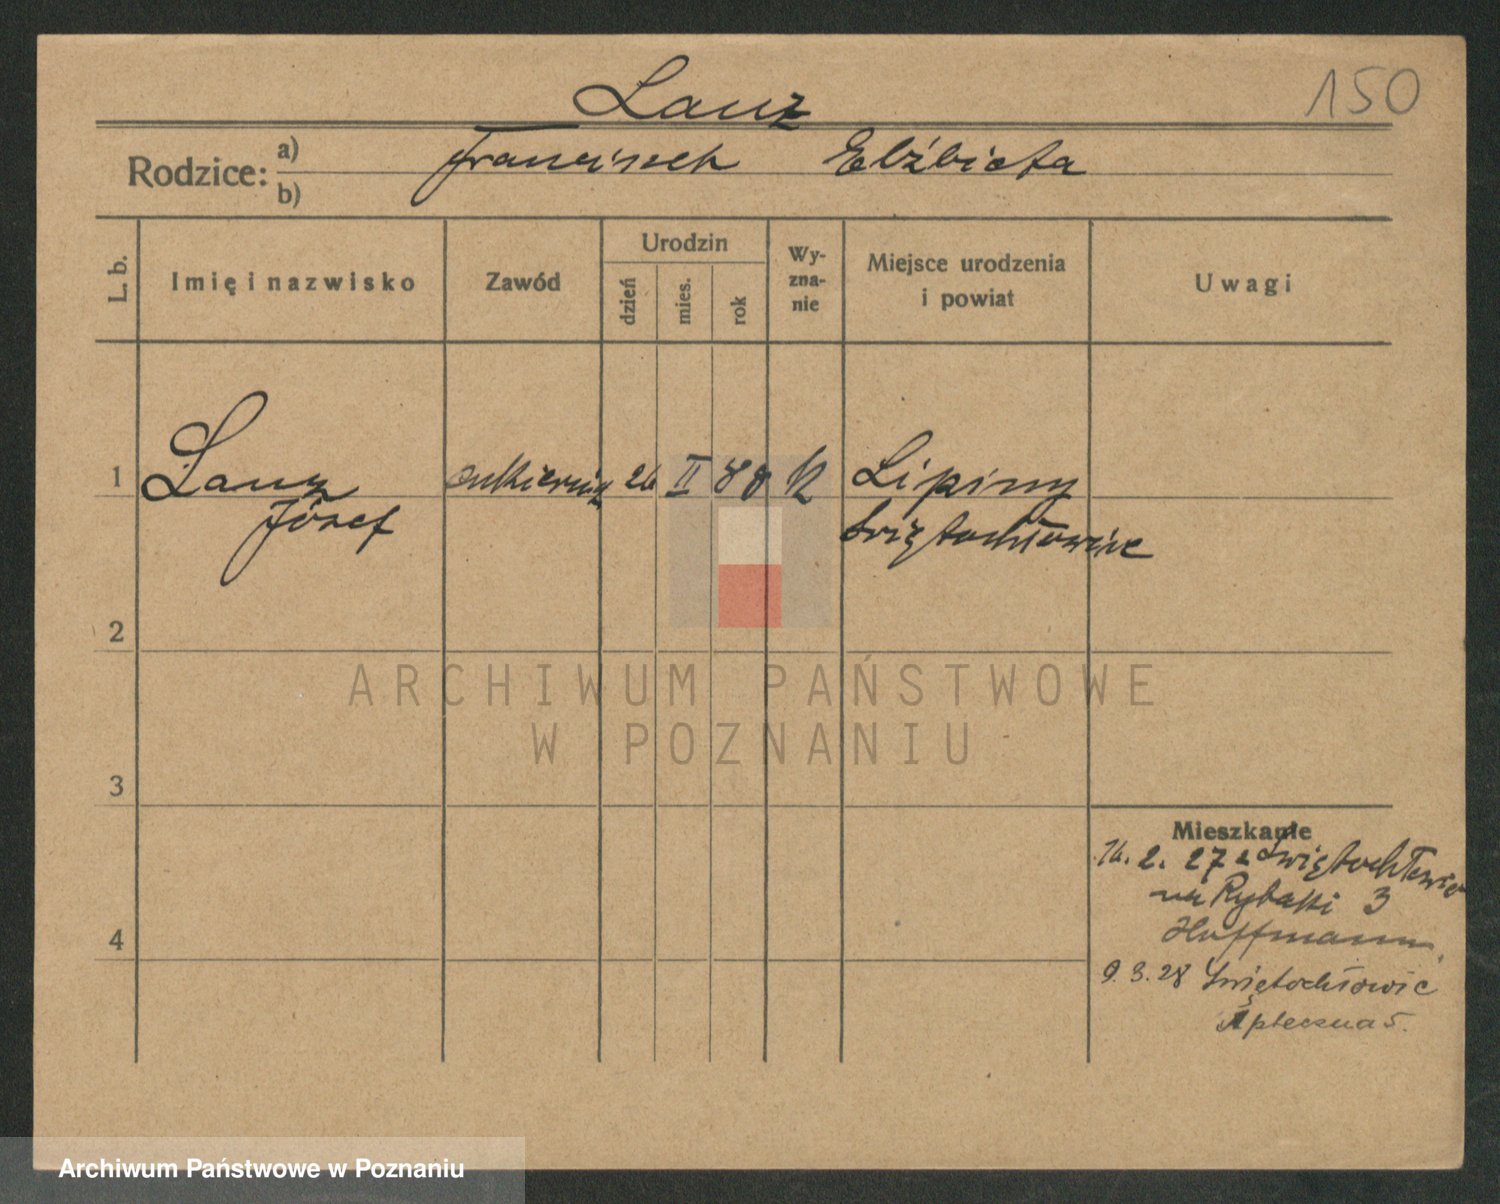 150
Lanz
Rodzice: a) Franciszek Elżbieta
b)
L. b.
Imię i nazwisko
Zawód
Urodzin
dzień
mies.
rok
Wy-
zna-
nie
Miejsce urodzenia
i powiat
Uwagi
1 Lanz cukiernik 26 II 88 k Lipiny
Józef Świętochłowice
2
ARCHIWUM PAŃSTWOWE
W POZNANIU
3
Mieszkanie
16. 2. 27 z Świętochłowic
na Rybaki 3
Hoffmann
4
9. 3. 28 Świętochłowic
Apteczna 5.
Archiwum Państwowe w Poznaniu